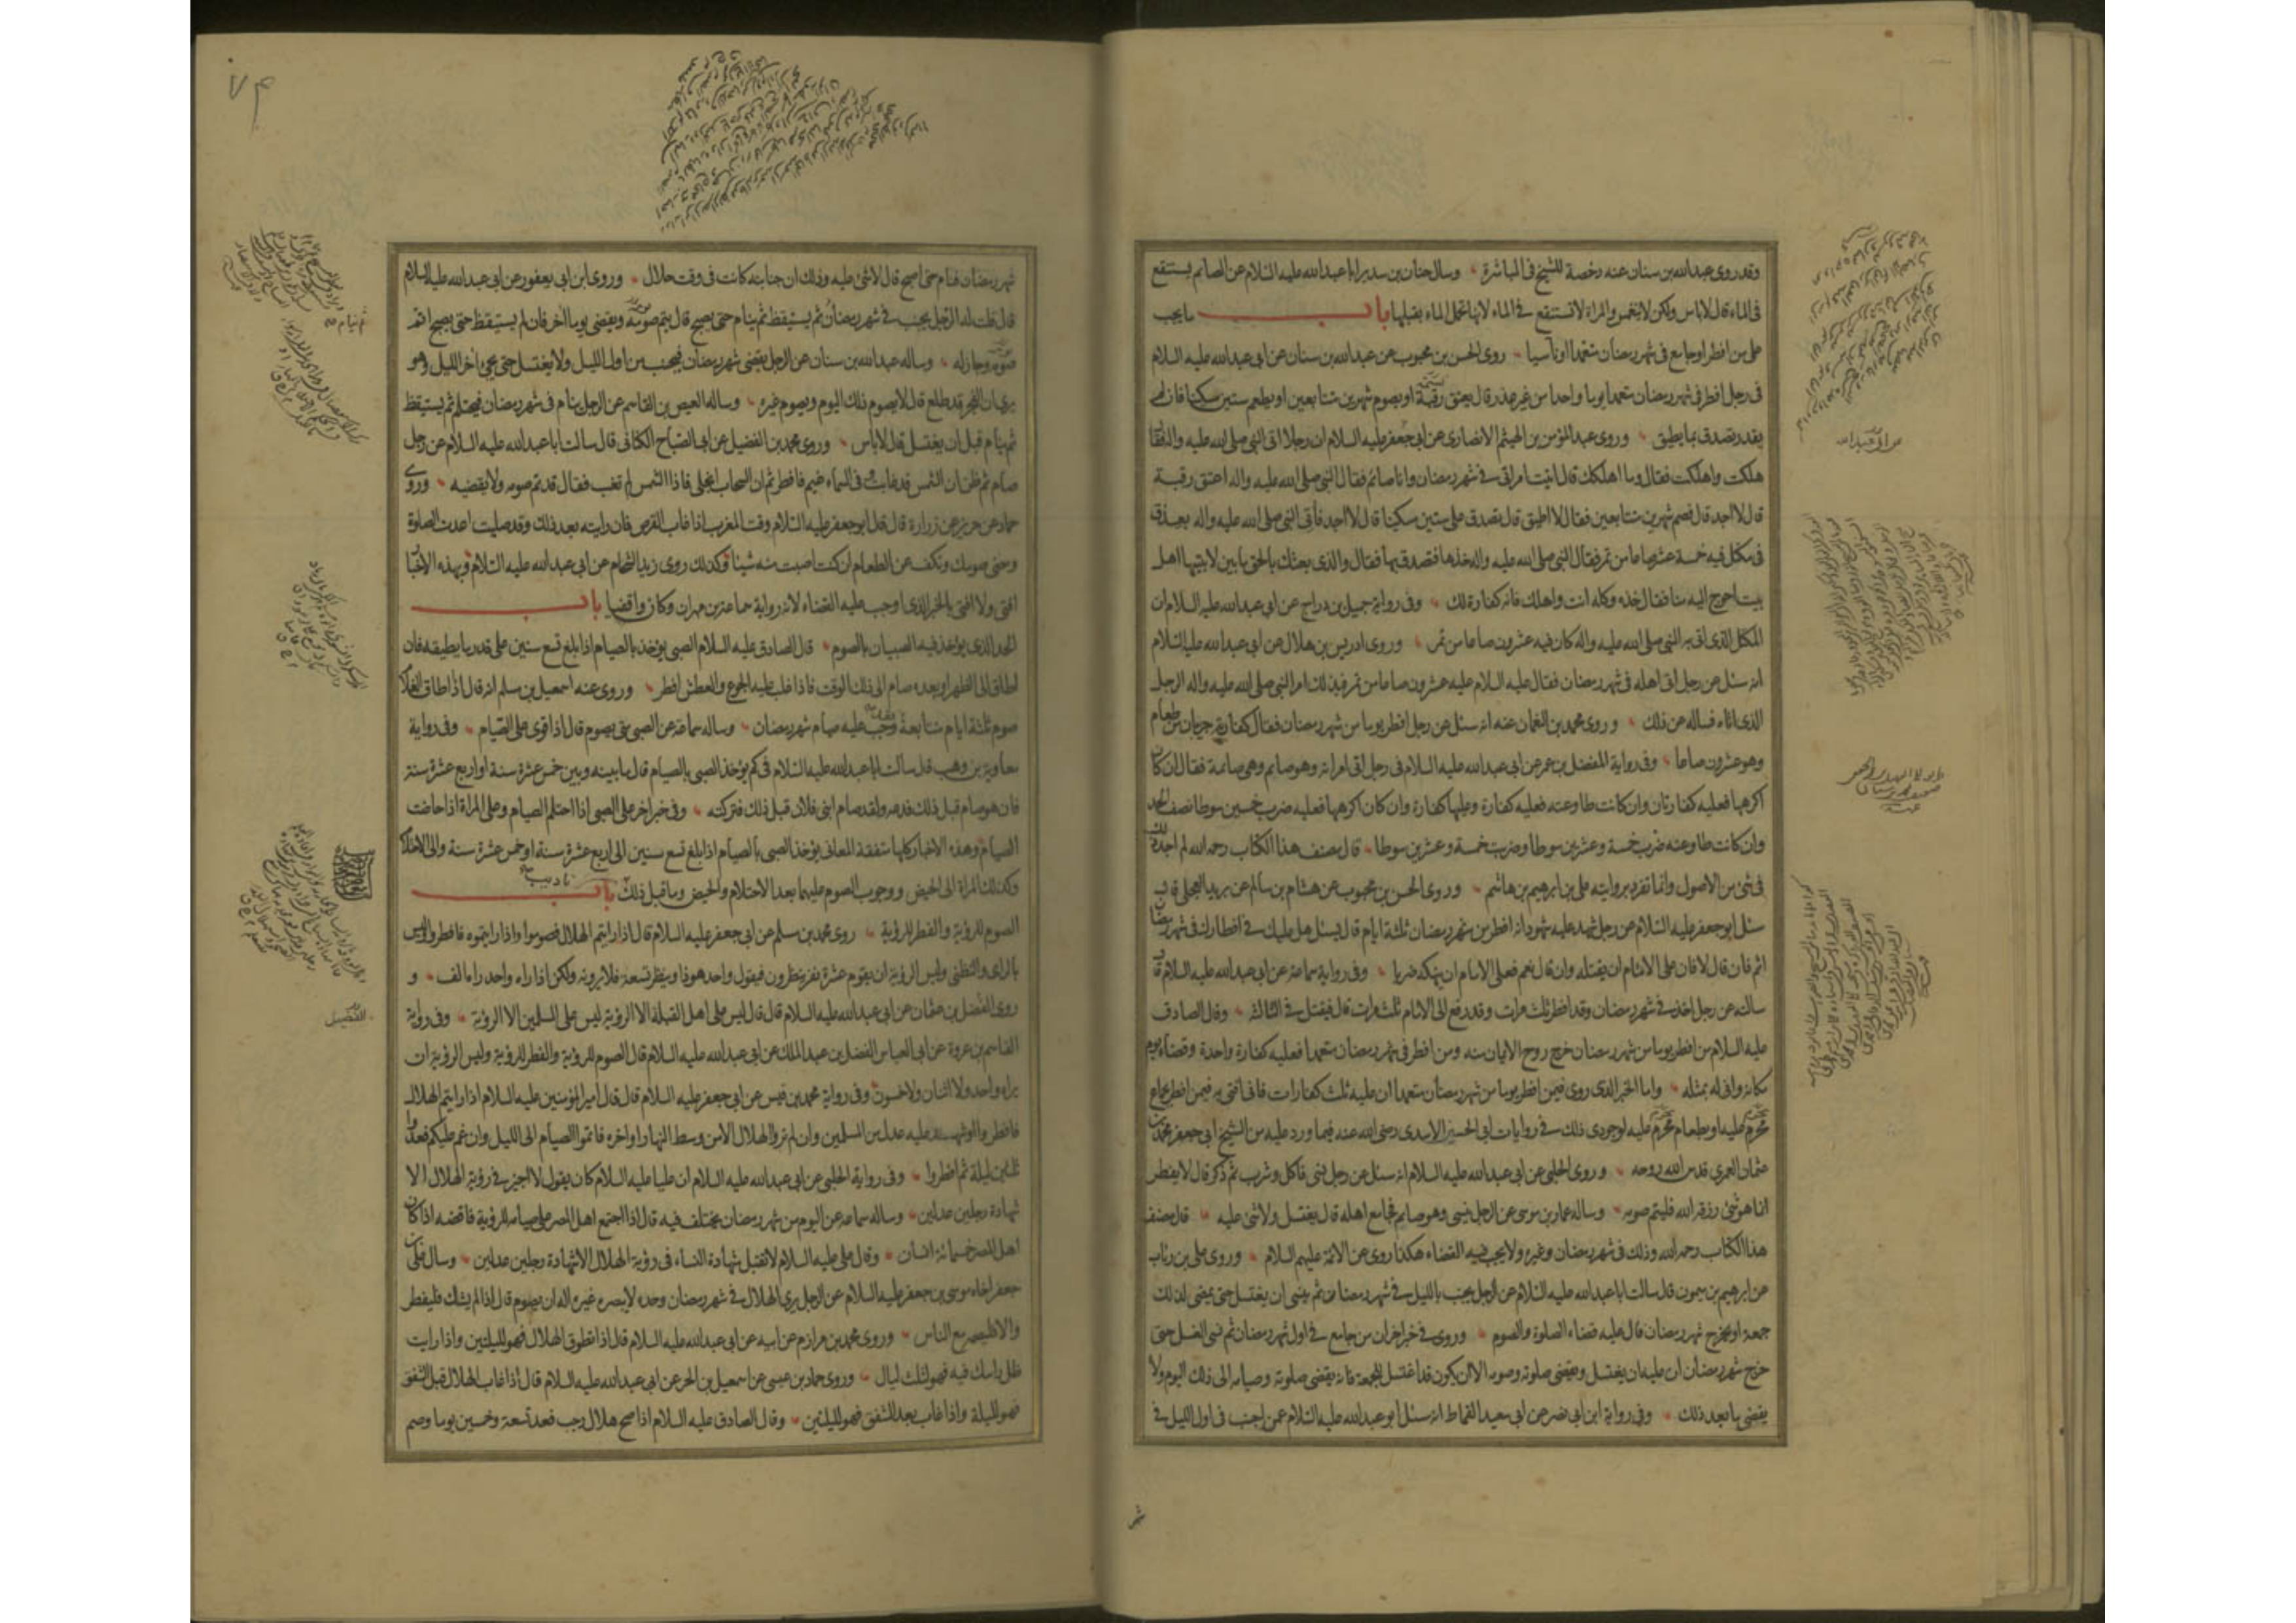 وقد روى عبدالله بن سنان عنه رخصة للشيخ في المباشرة وسال حنان بن سدير ابا عبدالله عليه السلام عن الصائم يستنقع
في الماء قال لاباس ولكن لا ينغمس والمراة لا تستنقع في الماء لانها تحمل الماء بقبلها باب ما يجب
على من افطر او جامع في شهر رمضان متعمدا او ناسيا روى الحسن بن محبوب عن عبدالله بن سنان عن ابي عبدالله عليه السلام
في رجل افطر في شهر رمضان متعمدا يوما واحدا من غير عذر قال يعتق رقبة او يصوم شهرين متتابعين او يطعم ستين مسكينا فان لم
يقدر تصدق بما يطيق وروى عبدالمؤمن بن الهيثم الانصارى عن ابي جعفر عليه السلام ان رجلا اتى النبي صلى الله عليه واله فقا
هلكت واهلكت فقال وما اهلكك قال اتيت امراتى في شهر رمضان وانا صائم فقال النبي صلى الله عليه واله اعتق رقبة
قال لا اجد قال فصم شهرين متتابعين فقال لا اطيق قال تصدق على ستين مسكينا قال لا اجد فاتى النبي صلى الله عليه واله بعذق
في مكتل فيه خمسة عشر صاعا من تمر فقال النبي صلى الله عليه واله خذها فتصدق بها فقال والذى بعثك بالحق ما بين لابتيها اهل
بيت احوج اليه منا فقال خذه وكله انت واهلك فانه كفارة لك وفي رواية جميل بن دراج عن ابي عبدالله عليه السلام ان
المكتل الذى اتى به النبي صلى الله عليه واله كان فيه عشرون صاعا من تمر وروى ادريس بن هلال عن ابي عبدالله عليه السلام
انه سئل عن رجل اتى اهله في شهر رمضان فقال عليه السلام عليه عشرون صاعا من تمر فبذلك امر النبي صلى الله عليه واله الرجل
الذى اتاه فساله عن ذلك وروى محمد بن النعمان عنه انه سئل عن رجل افطر يوما من شهر رمضان فقال كفارته جريبان من طعام
وهو عشرون صاعا وفي رواية المفضل بن عمر عن ابي عبدالله عليه السلام في رجل اتى امراته وهو صايم وهي صائمة فقال ان كان
اكرهها فعليه كفارتان وان كانت طاوعته فعليه كفارة وعليها كفارة وان كان اكرهها فعليه ضرب خمسين سوطا نصف الحد
وان كانت طاوعته ضرب خمسة وعشرين سوطا وضربت خمسة وعشرين سوطا قال مصنف هذا الكتاب رحمه الله لم اجد ذلك
في شئ من الاصول وانما تفرد بروايته على بن ابرهيم بن هاشم وروى الحسن بن محبوب عن هشام بن سالم عن بريد العجلى قال
سئل ابو جعفر عليه السلام عن رجل شهد عليه شهود انه افطر من شهر رمضان ثلثة ايام قال يسئل هل عليك في افطارك في شهر رمضا
اثم فان قال لا فان على الامام ان يقتله وان قال نعم فعلى الامام ان ينهكه ضربا وفي رواية سماعة عن ابي عبدالله عليه السلام قال
سالته عن رجل اخذ في شهر رمضان وقد افطر ثلث مرات وقد رفع الى الامام ثلث مرات قال فيقتل في الثالثة وقال الصادق
عليه السلام من افطر يوما من شهر رمضان خرج روح الايمان منه ومن افطر في شهر رمضان متعمدا فعليه كفارة واحدة وقضاء يوم
مكانه وانى له بمثله واما الخبر الذى روى فيمن افطر يوما من شهر رمضان متعمدا ان عليه ثلث كفارات فانى افتى به فيمن افطر بجماع
محرم عليه او بطعام محرم عليه لوجودى ذلك في روايات ابي الحسين الاسدى رضي الله عنه فيما ورد عليه من الشيخ ابي جعفر محمد بن
عثمان العمرى قدس الله روحه وروى الحلبي عن ابي عبدالله عليه السلام انه سئل عن رجل نسى فاكل وشرب ثم ذكر قال لا يفطر
انما هو شئ رزقه الله فليتم صومه وساله عمار بن موسى عن الرجل ينسى وهو صايم فجامع اهله قال يغتسل ولا شئ عليه قال مصنف
هذا الكتاب رحمه الله وذلك في شهر رمضان وغيره ولا يجب فيه القضاء هكذا روى عن الائمة عليهم السلام وروى على بن رئاب
عن ابرهيم بن ميمون قال سالت ابا عبدالله عليه السلام عن الرجل يجنب بالليل في شهر رمضان ثم ينسى ان يغتسل حتى يمضى لذلك
جمعة او يخرج شهر رمضان قال عليه قضاء الصلوة والصوم وروى في خبر اخر ان من جامع في اول شهر رمضان ثم نسى الغسل حتى
خرج شهر رمضان ان عليه ان يغتسل ويقضى صلوته وصومه الا ان يكون قد اغتسل للجمعة فانه يقضى صلوته وصيامه الى ذلك اليوم ولا
يقضى ما بعد ذلك وفي رواية ابن ابي نصر عن ابي سعيد القماط انه سئل ابو عبدالله عليه السلام عمن اجنب في اول الليل في
شهر
شهر رمضان فنام حتى اصبح قال لا شئ عليه وذلك ان جنابته كانت في وقت حلال وروى ابن ابي يعفور عن ابي عبدالله عليه السلام
قال قلت له الرجل يجنب في شهر رمضان ثم يستيقظ ثم ينام حتى يصبح قال يتم صومه ويقضى يوما اخر فان لم يستيقظ حتى يصبح اتم
صومه وجاز له وساله عبدالله بن سنان عن الرجل يقضى شهر رمضان فيجنب من اول الليل ولا يغتسل حتى يجئ اخر الليل وهو
يرى ان الفجر قد طلع قال لا يصوم ذلك اليوم ويصوم غيره وساله العيص بن القاسم عن الرجل ينام في شهر رمضان فيحتلم ثم يستيقظ
ثم ينام قبل ان يغتسل قال لاباس وروى محمد بن الفضيل عن ابي الصباح الكنانى قال سالت ابا عبدالله عليه السلام عن رجل
صام ثم ظن ان الشمس قد غابت وفي السماء غيم فافطر ثم ان السحاب انجلى فاذا الشمس لم تغب فقال قد تم صومه ولا يقضيه وروى
حماد عن حريز عن زرارة قال قال ابو جعفر عليه السلام وقت المغرب اذا غاب القرص فان رايته بعد ذلك وقد صليت اعدت الصلوة
ومضى صومك وتكف عن الطعام ان كنت اصبت منه شيئا وكذلك روى زيد الشحام عن ابي عبدالله عليه السلام وبهذه الاخبار
افتى ولا افتى بالخبر الذى اوجب عليه القضاء لانه رواية سماعة بن مهران وكان واقفيا باب
الحد الذى يؤخذ فيه الصبيان بالصوم قال الصادق عليه السلام الصبي يؤخذ بالصيام اذا بلغ تسع سنين على قدر ما يطيقه فان
اطاق الى الظهر او بعده صام الى ذلك الوقت فاذا غلب عليه الجوع والعطش افطر وروى عنه اسمعيل بن مسلم انه قال اذا اطاق الغلام
صوم ثلثة ايام متتابعة وجب عليه صيام شهر رمضان وساله سماعة عن الصبي متى يصوم قال اذا قوى على الصيام وفي رواية
معاوية بن وهب قال سالت ابا عبدالله عليه السلام في كم يؤخذ الصبي بالصيام قال ما بينه وبين خمس عشرة سنة او اربع عشرة سنة
فان هو صام قبل ذلك فدعه ولقد صام ابنى فلان قبل ذلك فتركته وفي خبر اخر على الصبي اذا احتلم الصيام وعلى المراة اذا حاضت
الصيام وهذه الاخبار كلها متفقة المعانى يؤخذ الصبي بالصيام اذا بلغ تسع سنين الى اربع عشرة سنة او خمس عشرة سنة والى الاحتلام
وكذلك المراة الى الحيض ووجوب الصوم عليهما بعد الاحتلام والحيض وما قبل ذلك تاديب باب
الصوم للرؤية والفطر للرؤية روى محمد بن مسلم عن ابي جعفر عليه السلام قال اذا رايتم الهلال فصوموا واذا رايتموه فافطروا وليس
بالراى والتظنى وليس الرؤية ان يقوم عشرة نفر ينظرون فيقول واحد هو ذا وينظر تسعة فلا يرونه ولكن اذا راه واحد راه الف و
روى الفضل بن عثمان عن ابي عبدالله عليه السلام قال قال ليس على اهل القبلة الا الرؤية ليس على المسلمين الا الرؤية وفي رواية
القاسم بن عروة عن ابي العباس الفضل بن عبدالملك عن ابي عبدالله عليه السلام قال الصوم للرؤية والفطر للرؤية وليس الرؤية ان
يراه واحد ولا اثنان ولا خمسون وفي رواية محمد بن قيس عن ابي جعفر عليه السلام قال قال امير المؤمنين عليه السلام اذا رايتم الهلال
فافطروا او شهد عليه عدل من المسلمين وان لم تروا الهلال الا من وسط النهار او اخره فاتموا الصيام الى الليل وان غم عليكم فعدوا
ثلثين ليلة ثم افطروا وفي رواية الحلبي عن ابي عبدالله عليه السلام ان عليا عليه السلام كان يقول لا اجيز في رؤية الهلال الا
شهادة رجلين عدلين وساله سماعة عن اليوم من شهر رمضان يختلف فيه قال اذا اجتمع اهل المصر على صيامه للرؤية فاقضه اذا كان
اهل المصر خمسمائة انسان وقال على عليه السلام لا تقبل شهادة النساء في رؤية الهلال الا شهادة رجلين عدلين وسال على بن
جعفر اخاه موسى بن جعفر عليه السلام عن الرجل يرى الهلال في شهر رمضان وحده لا يبصره غيره اله ان يصوم قال اذا لم يشك فليفطر
والا فليصم مع الناس وروى محمد بن مرازم عن ابيه عن ابي عبدالله عليه السلام قال اذا تطوق الهلال فهو لليلتين واذا رايت
ظل راسك فيه فهو لثلث ليال وروى حماد بن عيسى عن اسمعيل بن الحر عن ابي عبدالله عليه السلام قال اذا غاب الهلال قبل الشفق
فهو لليلة واذا غاب بعد الشفق فهو لليلتين وقال الصادق عليه السلام اذا صح هلال رجب فعد تسعة وخمسين يوما وصم